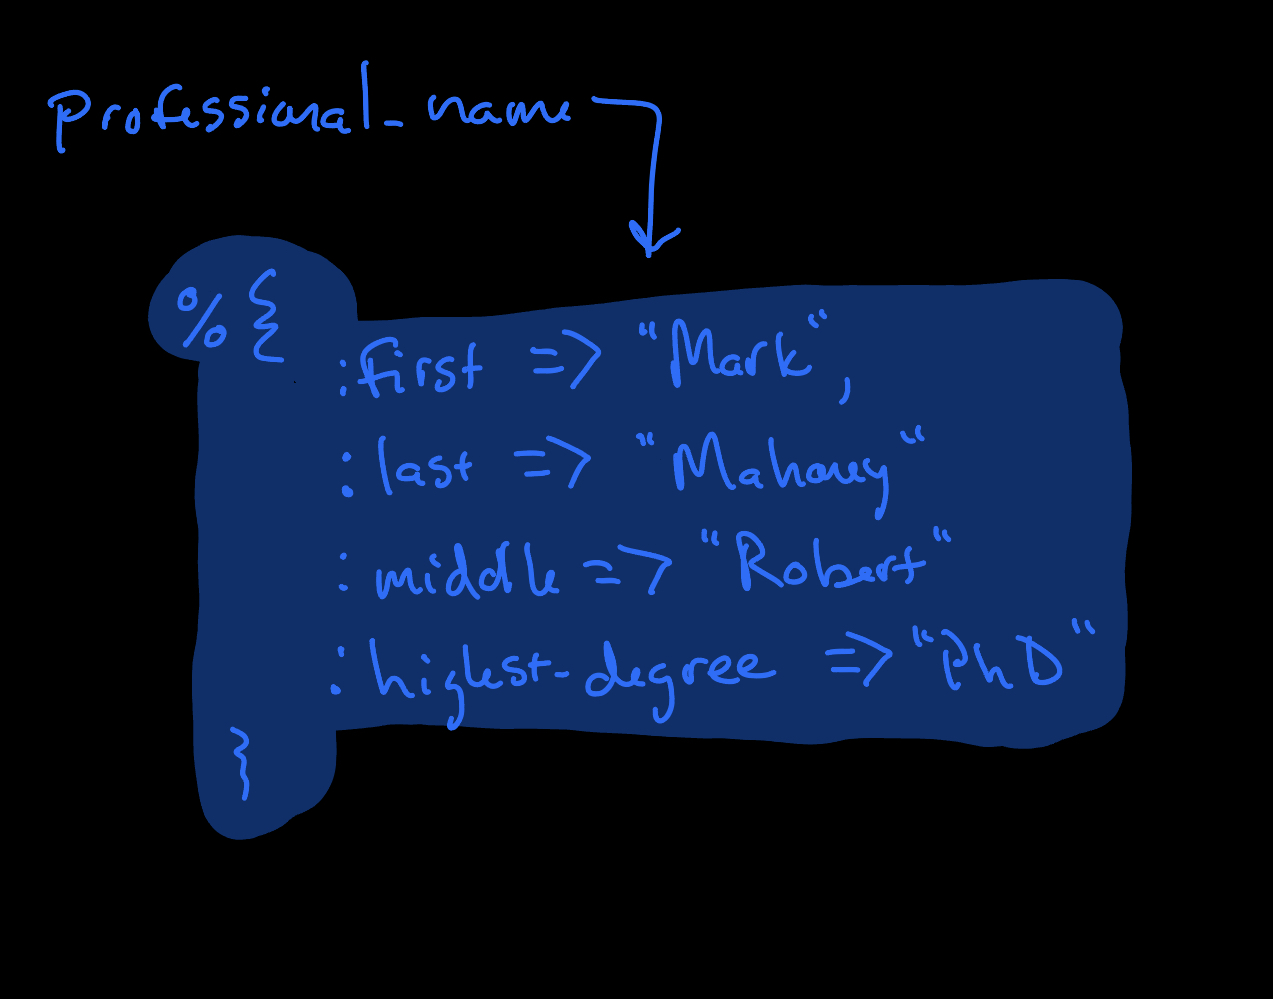 professional_name
%{
:first => "Mark",
:last => "Mahoney"
:middle => "Robert"
:highest_degree => "PhD"
}